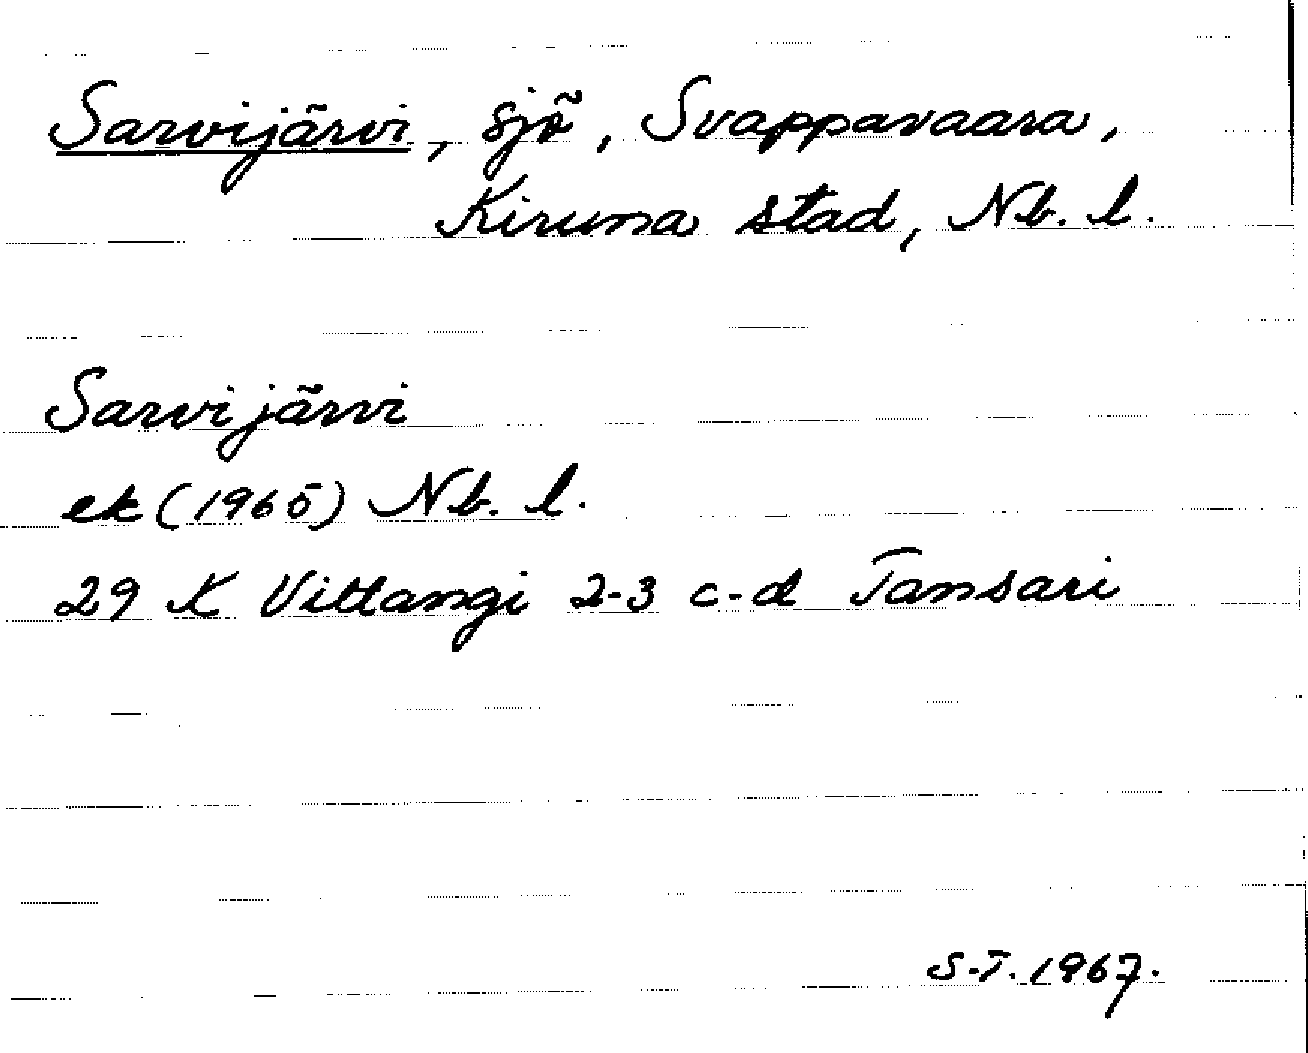 Sarvijärvi, sjö, Svappavaara,
Kiruna stad, Nb. l.
Sarvijärvi
ek (1965) Nb. l.
29 K Vittangi 2-3 c-d Tansari
S.T. 1967.